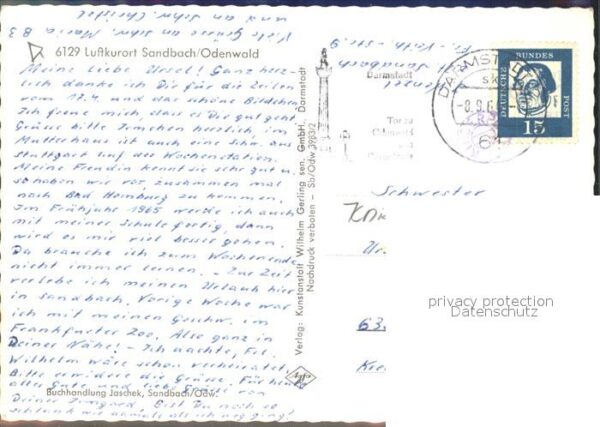 6129 Luftkurort Sandbach/Odenwald
Meine liebe Ursel! Ganz herz-
lich danke ich Dir für die Zeilen
vom 17.4. und das schöne Bildchen.
Ich freue mich, dass es Dir gut geht.
Grüsse bitte herzlich im
Mutterhaus ist auch eine Schw. aus
Stuttgart auf der Wochenstation.
Meine Freundin kennt sie sehr gut u.
so haben wir vor, zusammen mal
nach Bad Homburg zu kommen.
Im Frühjahr 1965 werde ich auch
mit meiner Schule fertig, dann
wird es mir viel besser gehen.
Da brauche ich zum Wochenende
nicht immer lernen. – Zur Zeit
verlebe ich meinen Urlaub hier
in Sandbach. Vorige Woche war
ich mit meinen Geschw. im
Frankfurter Zoo. Also ganz in
Deiner Nähe! – Ich dachte, Frl.
Wilhelm wäre schon verheiratet.
Bitte erwidere die Grüsse. Für heute
alles Gute und liebe Grüsse von
Deiner Irmgard. Bist Du noch so
schlank wie damals als ich weg ging!
Viele Grüsse an Schw. Maria
und an Schw. Christel
Buchhandlung Jaschek, Sandbach/Odw.
Verlag: Kunstanstalt Wilhelm Gerling sen. GmbH., Darmstadt
Nachdruck verboten – Sb/Odw 3933/2
Sandbach
Darmstadt
Tor zu
Odenwald
und
DARMSTADT
-8.9.6
61
DEUTSCHE
BUNDES
POST
15
Schwester
Ur.
63
privacy protection
Datenschutz